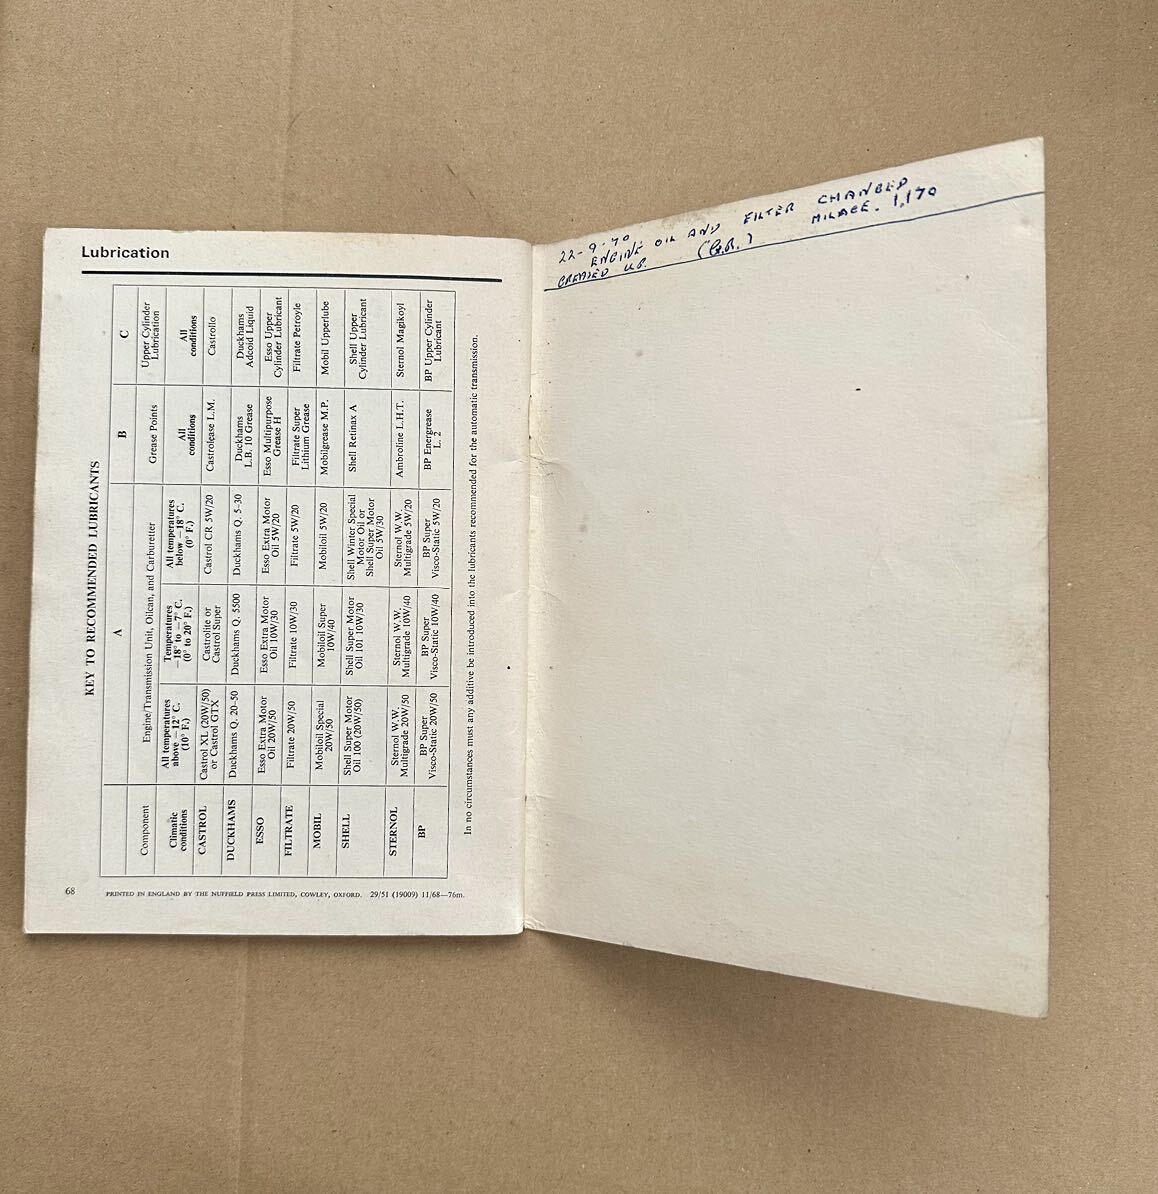 Lubrication
KEY TO RECOMMENDED LUBRICANTS
A B C
Component Engine/Transmission Unit, Oilcan, and Carburetter Grease Points Upper Cylinder Lubrication
Climatic conditions All temperatures above −12° C. (10° F.) Temperatures −18° to −7° C. (0° to 20° F.) All temperatures below −18° C. (0° F.) All conditions All conditions
CASTROL Castrol XL (20W/50) or Castrol GTX Castrolite or Castrol Super Castrol CR 5W/20 Castrolease L.M. Castrollo
DUCKHAMS Duckhams Q. 20-50 Duckhams Q. 5500 Duckhams Q. 5-30 Duckhams L.B. 10 Grease Duckhams Adcoid Liquid
ESSO Esso Extra Motor Oil 20W/50 Esso Extra Motor Oil 10W/30 Esso Extra Motor Oil 5W/20 Esso Multipurpose Grease H Esso Upper Cylinder Lubricant
FILTRATE Filtrate 20W/50 Filtrate 10W/30 Filtrate 5W/20 Filtrate Super Lithium Grease Filtrate Petroyle
MOBIL Mobiloil Special 20W/50 Mobiloil Super 10W/40 Mobiloil 5W/20 Mobilgrease M.P. Mobil Upperlube
SHELL Shell Super Motor Oil 100 (20W/50) Shell Super Motor Oil 101 10W/30 Shell Winter Special Motor Oil or Shell Super Motor Oil 5W/30 Shell Retinax A Shell Upper Cylinder Lubricant
STERNOL Sternol W.W. Multigrade 20W/50 Sternol W.W. Multigrade 10W/40 Sternol W.W. Multigrade 5W/20 Ambroline L.H.T. Sternol Magikoyl
BP BP Super Visco-Static 20W/50 BP Super Visco-Static 10W/40 BP Super Visco-Static 5W/20 BP Energrease L. 2 BP Upper Cylinder Lubricant
In no circumstances must any additive be introduced into the lubricants recommended for the automatic transmission.
68 PRINTED IN ENGLAND BY THE NUFFIELD PRESS LIMITED, COWLEY, OXFORD. 29/51 (19009) 11/68—76m.
22-9-70
ENGINE OIL AND FILTER CHANGED
GREASED UP. MILAGE. 1,170